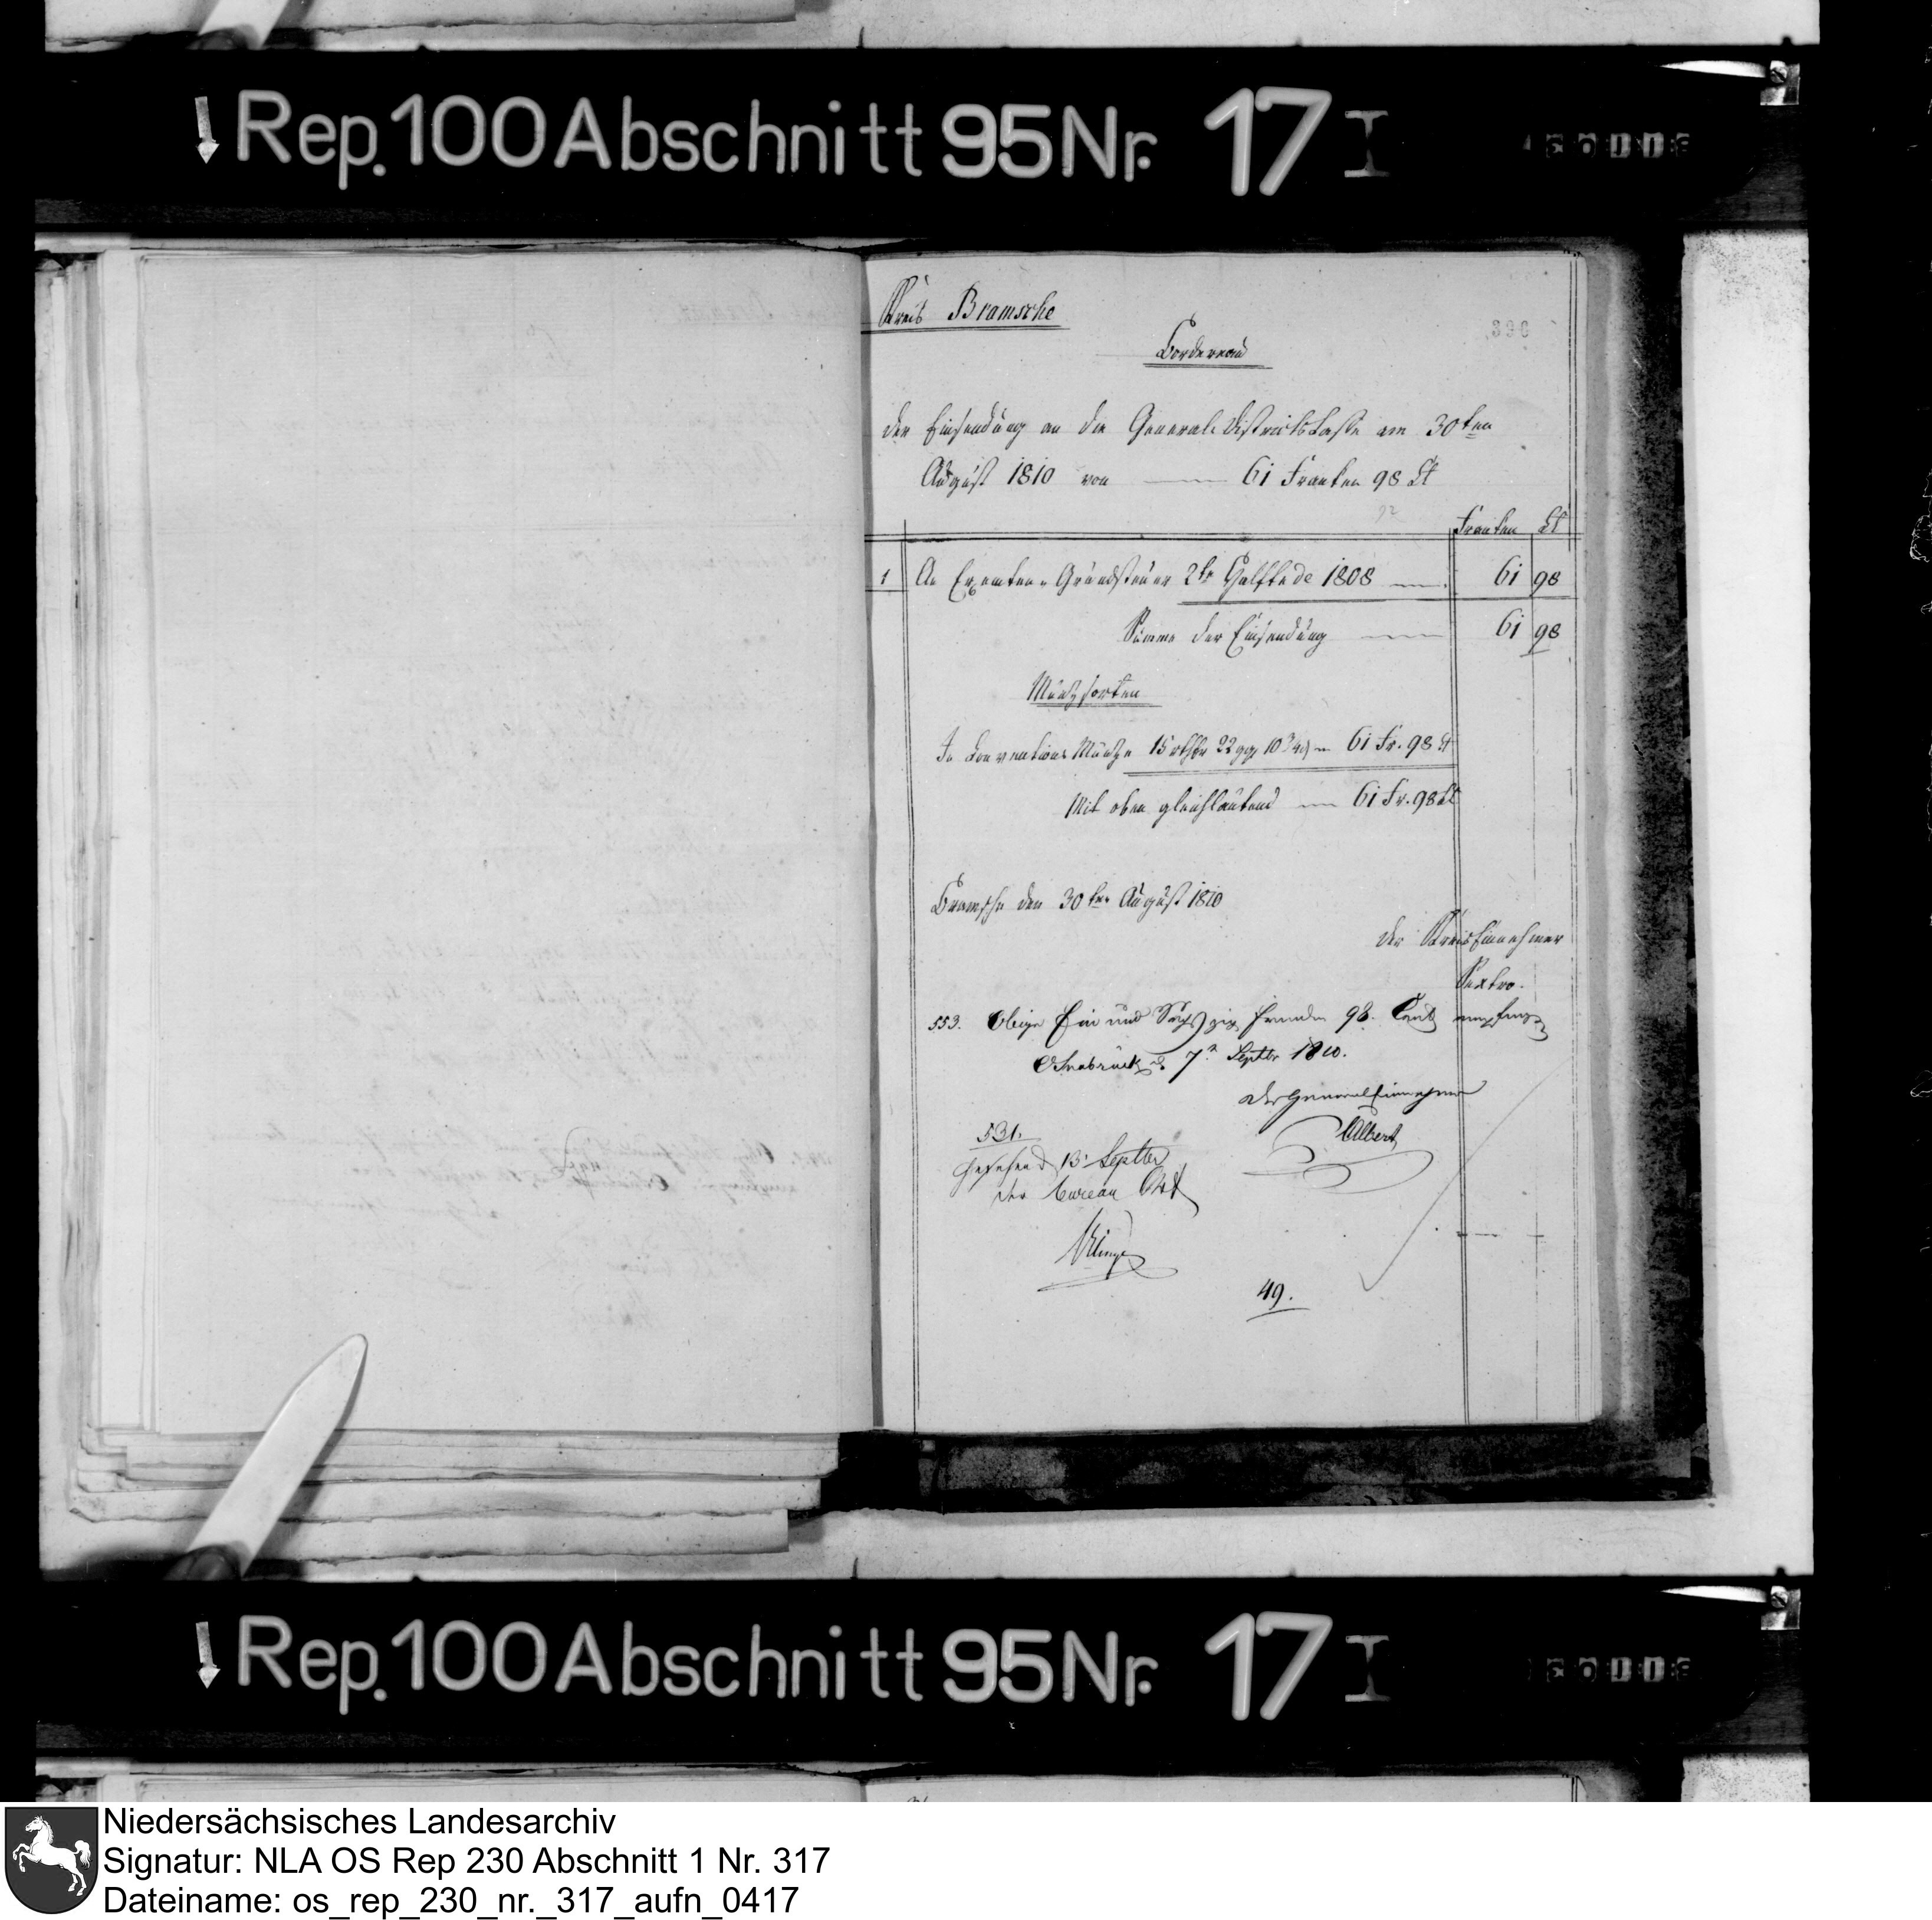 Rep. 100 Abschnitt 95 Nr. 17 I
Kreis Bramsche
396
Bordereau
der Einsendung an die General-Districtskasse am 30ten
August 1810 von 61 Franken 98 Ct
Franken Ct
1 An Exemten-Grundsteuer 2te Halfte de 1808 61 98
Summa der Einsendung 61 98
Münzsorten
In Conventions Münze 15 rthlr 22 ggr 10 3/4 d 61 Fr. 98 Ct
Mit oben gleichlautend 61 Fr. 98 Ct
Bramsche den 30ten August 1810
der KreisEinnehmer
Sextro.
553. Obige Ein und Sechszig Franken 98. Cent empfangen
Osnabrück d 7n Septbr 1810.
Der GeneralEinnehmer
Albert
531.
Gesehen d 13 Septbr
der bureau Chef
49.
Rep. 100 Abschnitt 95 Nr. 17 I
Niedersächsisches Landesarchiv
Signatur: NLA OS Rep 230 Abschnitt 1 Nr. 317
Dateiname: os_rep_230_nr._317_aufn_0417